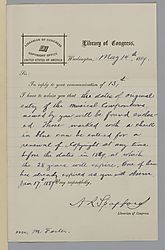 LIBRARIAN OF CONGRESS
COPYRIGHT OFFICE
UNITED STATES OF AMERICA
Library of Congress,
Washington, May 14th 1889.
Sir:
In reply to your communication of 13th
I have to advise you that the dates of original
entry of the musical compositions
named by you will be found enclos-
ed. Those marked with a check
in blue can be entered for a
renewal of copyright at any time
before the date in 1889, at which
the 28 years will expire. One of them
has already expired as you will observe
Jan 17. 1889
Very respectfully,
A R Spofford
Librarian of Congress.
M. Foster.